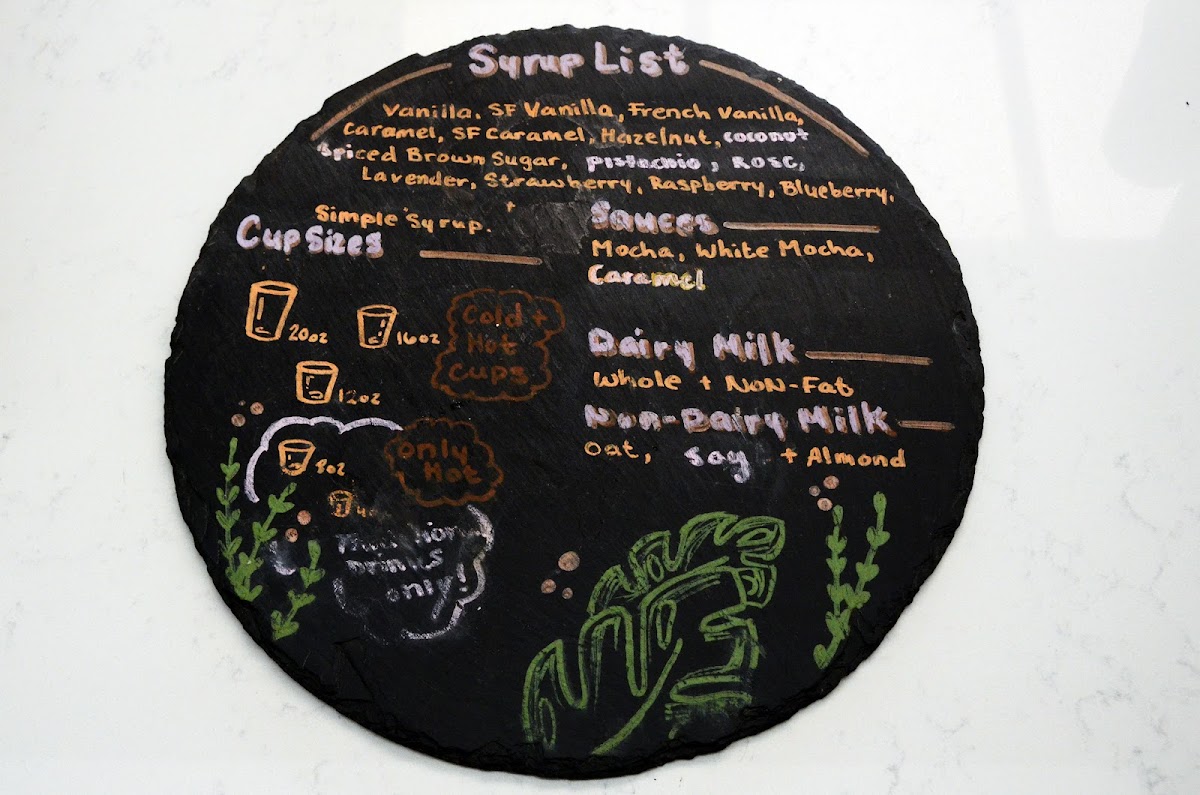 Syrup List
Vanilla, SF Vanilla, French Vanilla,
Caramel, SF Caramel, Hazelnut, coconut
Spiced Brown Sugar, pistachio, Rose,
Lavender, Strawberry, Raspberry, Blueberry,
+
Simple Syrup.
Cup Sizes
20oz
16oz
12oz
Cold +
Hot
Cups
8oz
only
Hot
4
Drinks
only!
Sauces
Mocha, White Mocha,
Caramel
Dairy Milk
Whole + NON-Fat
Non-Dairy Milk
Oat, Soy + Almond